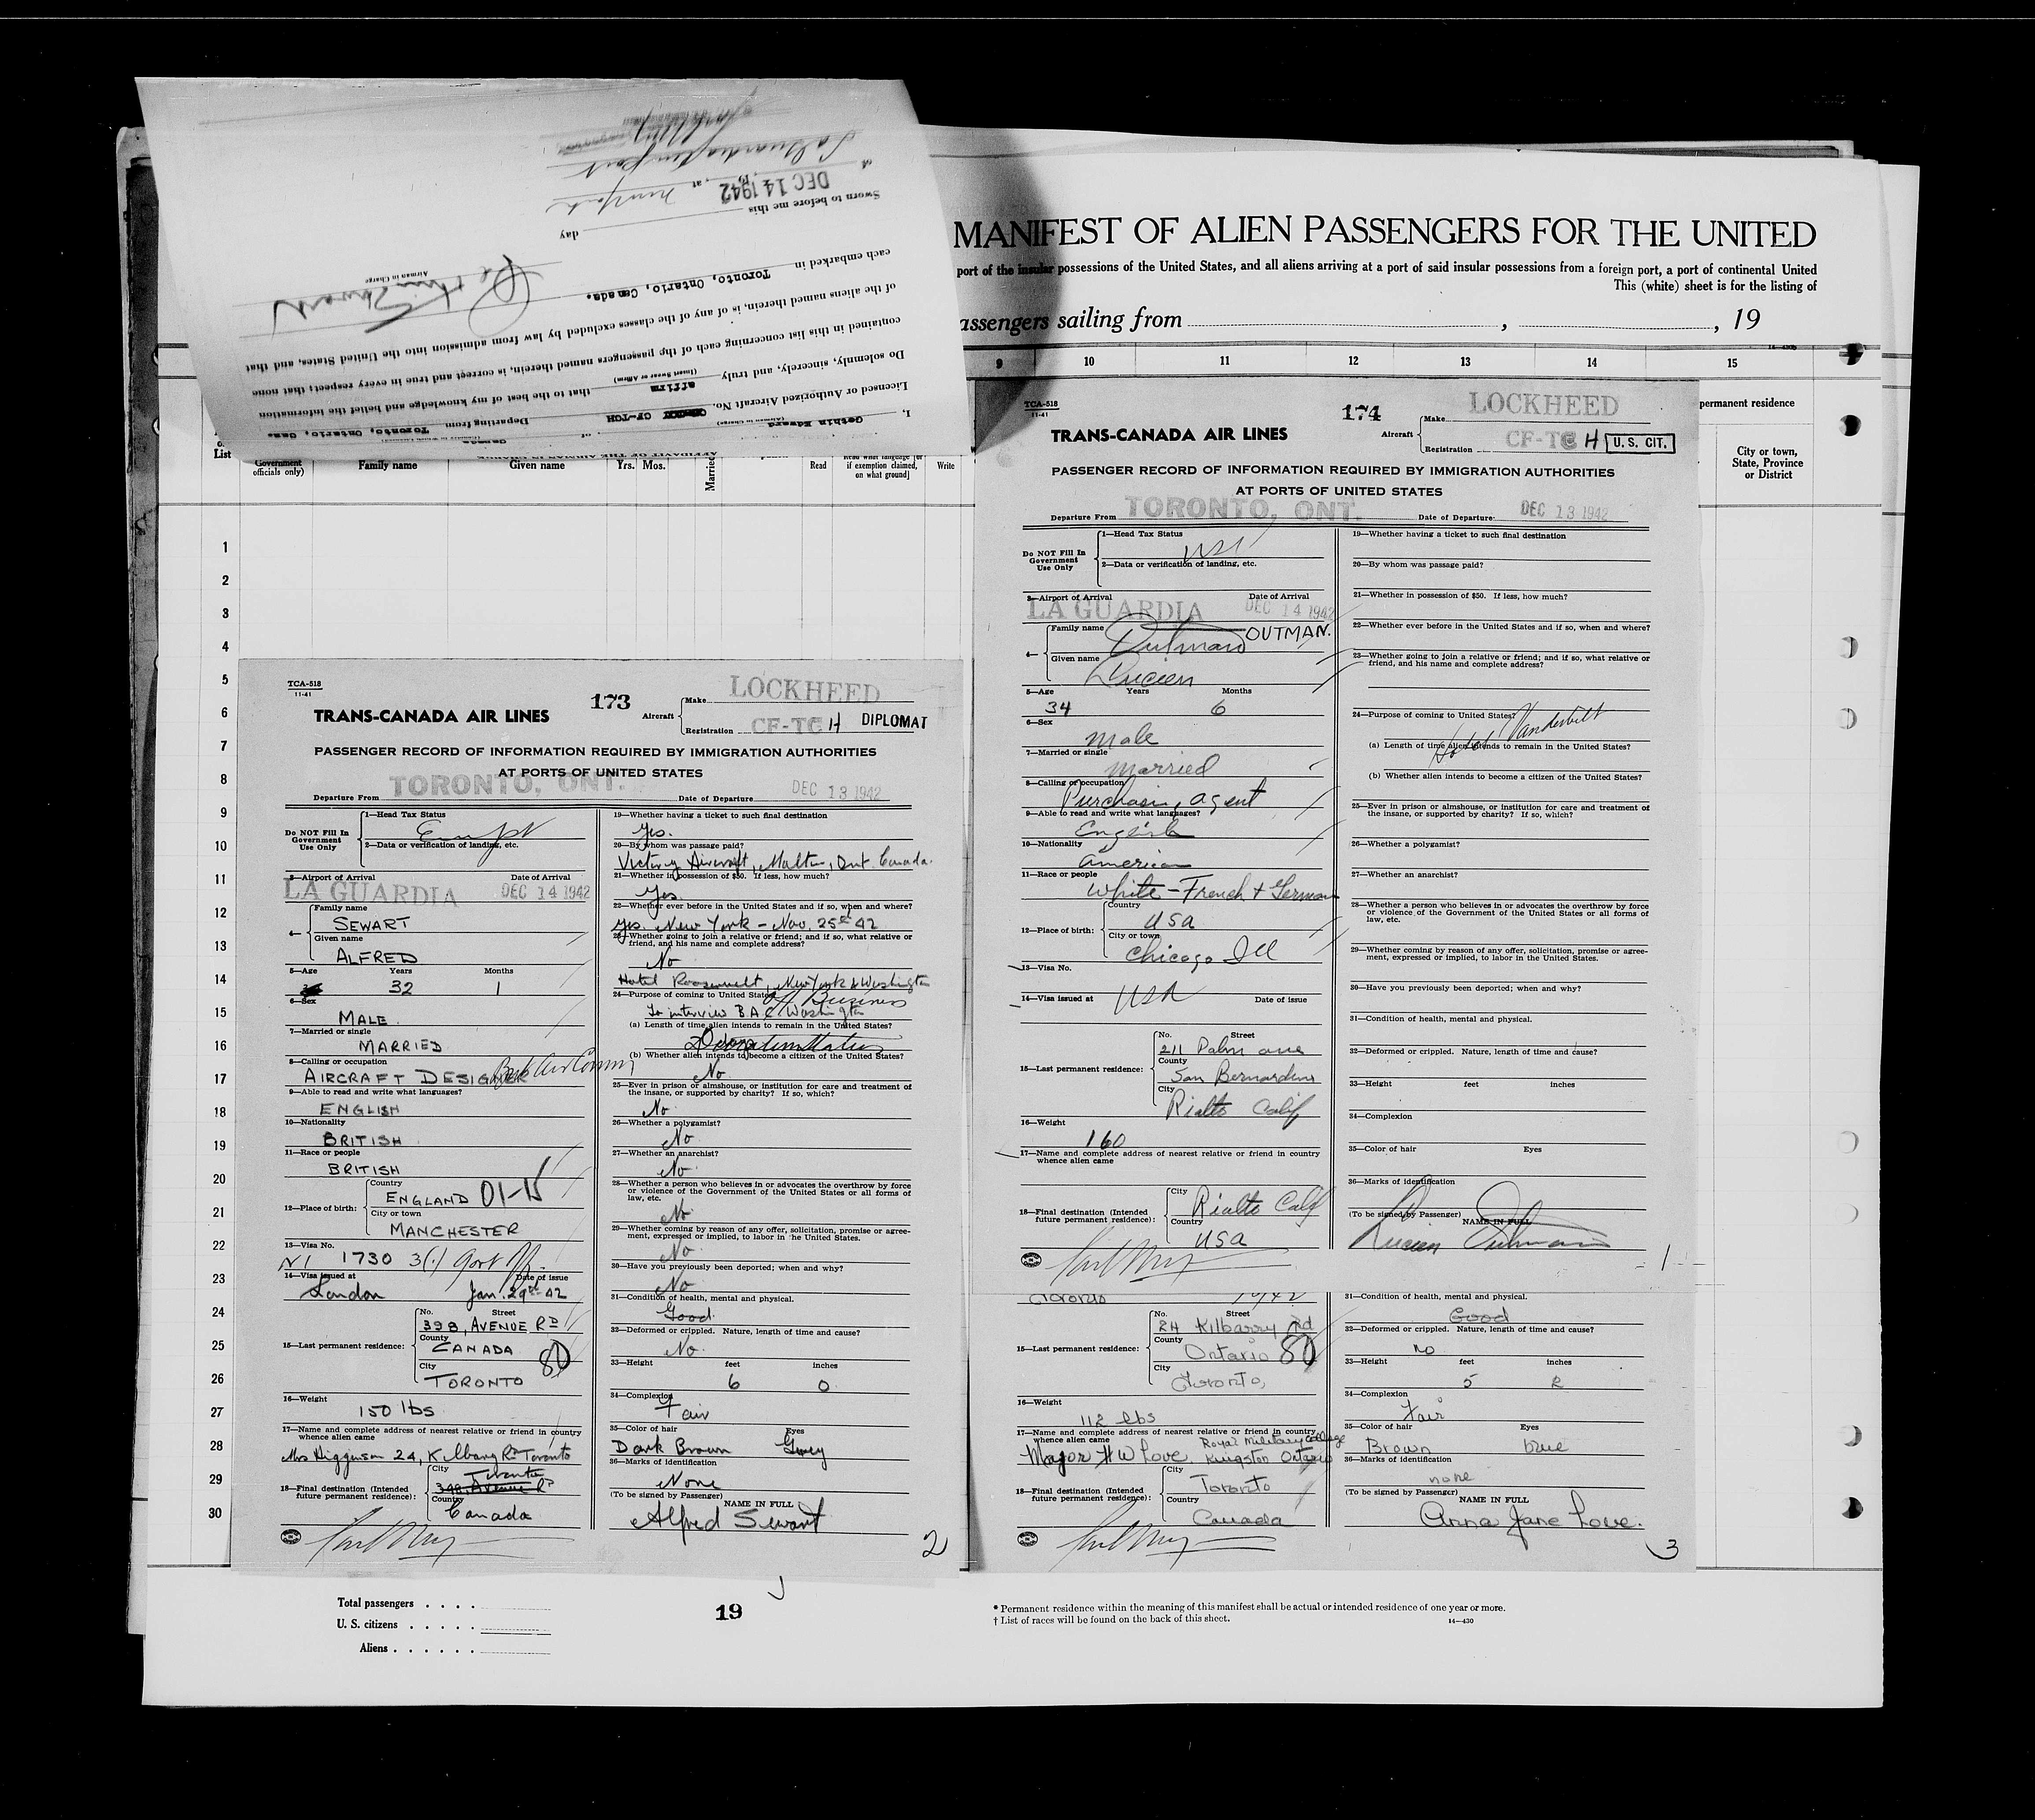 DEC 14 1942
Sworn to before me this
day
at
New York
La Guardia Airport
Airman in Charge
each embarked in Toronto, Ontario, Canada.
of the aliens named therein, is of any of the classes excluded by law from admission into the United States, and that
contained in this list concerning each of the passengers named therein, is correct and true in every respect; that none
Do solemnly, sincerely, and truly affirm that to the best of my knowledge and belief the information
(Insert Swear or Affirm)
Licensed or Authorized Aircraft No. CF-TCH Departing from Toronto, Ontario, Can.
I, Gethin Edward of Canada
(Airman in Charge)
MANIFEST OF ALIEN PASSENGERS FOR THE UNITED
port of the insular possessions of the United States, and all aliens arriving at a port of said insular possessions from a foreign port, a port of continental United
This (white) sheet is for the listing of
assengers sailing from , , 19
9 10 11 12 13 14 15
List
Government officials only)
Family name
Given name
Yrs. Mos.
Married
Read
if exemption claimed, on what ground]
Write
permanent residence
City or town, State, Province or District
1
2
3
4
5
6
7
8
9
10
11
12
13
14
15
16
17
18
19
20
21
22
23
24
25
26
27
28
29
30
TCA-518
11-41
173
TRANS-CANADA AIR LINES
Aircraft
Make LOCKHEED
Registration CF-TC H DIPLOMAT
PASSENGER RECORD OF INFORMATION REQUIRED BY IMMIGRATION AUTHORITIES
AT PORTS OF UNITED STATES
Departure From TORONTO, ONT. Date of Departure DEC 13 1942
Do NOT Fill In Government Use Only
1—Head Tax Status
2—Data or verification of landing, etc.
3—Airport of Arrival Date of Arrival
LA GUARDIA DEC 14 1942
4—
Family name
SEWART
Given name
ALFRED
5—Age Years Months
32 1
6—Sex
MALE
7—Married or single
MARRIED
8—Calling or occupation
AIRCRAFT DESIGNER
9—Able to read and write what languages?
ENGLISH
10—Nationality
BRITISH
11—Race or people
BRITISH
12—Place of birth:
Country
ENGLAND
City or town
MANCHESTER
13—Visa No.
1730 3(1) Gort
14—Visa issued at Date of issue
London Jan. 29th 42
15—Last permanent residence:
No. Street
398, AVENUE RD
County
CANADA
City
TORONTO
80
16—Weight
150 lbs
17—Name and complete address of nearest relative or friend in country whence alien came
Mrs Higginson 24, Kilbarry Rd Toronto
18—Final destination (Intended future permanent residence):
City
Toronto
398, Avenue Rd
Country
Canada
19—Whether having a ticket to such final destination
Yes.
20—By whom was passage paid?
Victory Aircraft, Malton, Ont. Canada.
21—Whether in possession of $50. If less, how much?
Yes.
22—Whether ever before in the United States and if so, when and where?
Yes. New York - Nov. 25th 42
23—Whether going to join a relative or friend; and if so, what relative or friend, and his name and complete address?
No
Hotel Roosevelt, New York & Washington
24—Purpose of coming to United States
Business
To interview B.A.C. Washington
(a) Length of time alien intends to remain in the United States?
(b) Whether alien intends to become a citizen of the United States?
No.
25—Ever in prison or almshouse, or institution for care and treatment of the insane, or supported by charity? If so, which?
No
26—Whether a polygamist?
No
27—Whether an anarchist?
No
28—Whether a person who believes in or advocates the overthrow by force or violence of the Government of the United States or all forms of law, etc.
No
29—Whether coming by reason of any offer, solicitation, promise or agreement, expressed or implied, to labor in the United States.
No
30—Have you previously been deported; when and why?
No
31—Condition of health, mental and physical.
Good
32—Deformed or crippled. Nature, length of time and cause?
No.
33—Height feet inches
6 0
34—Complexion
Fair
35—Color of hair Eyes
Dark Brown Grey
36—Marks of identification
None
(To be signed by Passenger)
NAME IN FULL
Alfred Sewart
2
TCA-518
11-41
174
TRANS-CANADA AIR LINES
Aircraft
Make LOCKHEED
Registration CF-TC H U. S. CIT.
PASSENGER RECORD OF INFORMATION REQUIRED BY IMMIGRATION AUTHORITIES
AT PORTS OF UNITED STATES
Departure From TORONTO, ONT. Date of Departure DEC 13 1942
Do NOT Fill In Government Use Only
1—Head Tax Status
2—Data or verification of landing, etc.
3—Airport of Arrival Date of Arrival
LA GUARDIA DEC 14 1942
4—
Family name
Outman OUTMAN.
Given name
Lucien
5—Age Years Months
34 6
6—Sex
male
7—Married or single
married
8—Calling or occupation
Purchasing agent
9—Able to read and write what languages?
English
10—Nationality
American
11—Race or people
White - French & German
12—Place of birth:
Country
USA
City or town
Chicago Ill
13—Visa No.
14—Visa issued at Date of issue
USA
15—Last permanent residence:
No. Street
211 Palm ave
County
San Bernardino
City
Rialto Calif
16—Weight
160
17—Name and complete address of nearest relative or friend in country whence alien came
18—Final destination (Intended future permanent residence):
City
Rialto Calif
Country
USA
19—Whether having a ticket to such final destination
20—By whom was passage paid?
21—Whether in possession of $50. If less, how much?
22—Whether ever before in the United States and if so, when and where?
23—Whether going to join a relative or friend; and if so, what relative or friend, and his name and complete address?
24—Purpose of coming to United States?
Hotel Vanderbilt
(a) Length of time alien intends to remain in the United States?
(b) Whether alien intends to become a citizen of the United States?
25—Ever in prison or almshouse, or institution for care and treatment of the insane, or supported by charity? If so, which?
26—Whether a polygamist?
27—Whether an anarchist?
28—Whether a person who believes in or advocates the overthrow by force or violence of the Government of the United States or all forms of law, etc.
29—Whether coming by reason of any offer, solicitation, promise or agreement, expressed or implied, to labor in the United States.
30—Have you previously been deported; when and why?
31—Condition of health, mental and physical.
32—Deformed or crippled. Nature, length of time and cause?
33—Height feet inches
34—Complexion
35—Color of hair Eyes
36—Marks of identification
(To be signed by Passenger)
NAME IN FULL
Lucien Outman
1
Toronto
15—Last permanent residence:
No. Street
24 Kilbarry Rd
County
Ontario 80
City
Toronto,
16—Weight
112 lbs
17—Name and complete address of nearest relative or friend in country whence alien came
Major H W Love. Royal Military College
Kingston Ontario
18—Final destination (Intended future permanent residence):
City
Toronto
Country
Canada
31—Condition of health, mental and physical.
Good
32—Deformed or crippled. Nature, length of time and cause?
no
33—Height feet inches
5 2
34—Complexion
Fair
35—Color of hair Eyes
Brown blue
36—Marks of identification
none
(To be signed by Passenger)
NAME IN FULL
Anna Jane Love.
3
Total passengers . . . .
U. S. citizens . . . . .
Aliens . . . . . .
19
* Permanent residence within the meaning of this manifest shall be actual or intended residence of one year or more.
† List of races will be found on the back of this sheet.
14—430